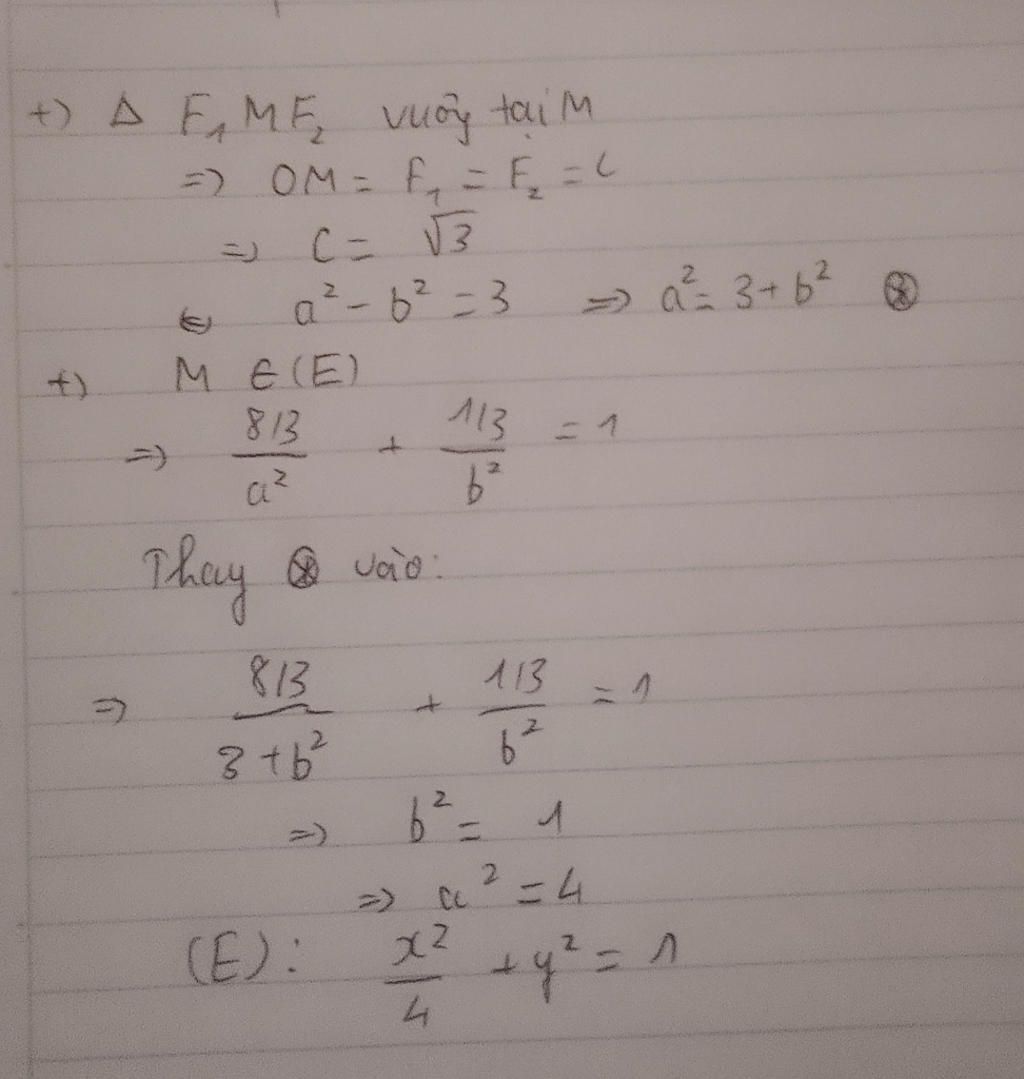 +) Δ F₁MF₂ vuông tại M
=> OM = F₁ = F₂ = C
=> C = √3
<=> a² - b² = 3 => a² = 3 + b² ⊛
+) M ∈ (E)
=> (8/3)/a² + (1/3)/b² = 1
Thay ⊛ vào:
=> (8/3)/(3 + b²) + (1/3)/b² = 1
=> b² = 1
=> a² = 4
(E): x²/4 + y² = 1